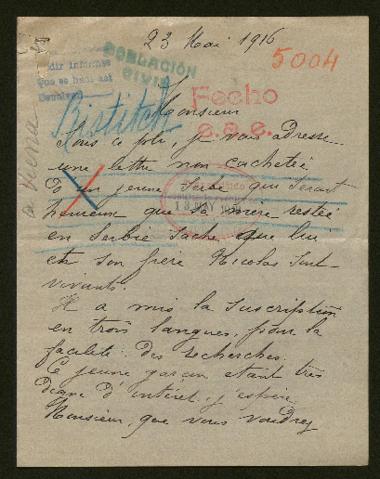 23 Mai 1916
5004
POBLACIÓN
CIVIL
Pedir informes
Fecho
e.a.e.
Ristitch
Monsieur
Sous ce pli, je vous adresse
une lettre non cachetée
D'un jeune Serbe qui serait
heureux que sa mère restée
en Serbie sache que lui
et son frère Nicolas sont
vivants.
Il a mis la suscription
en trois langues, pour la
facilité des recherches.
Ce jeune garçon étant très
digne d'intérêt, j'espère
Monsieur, que vous voudrez